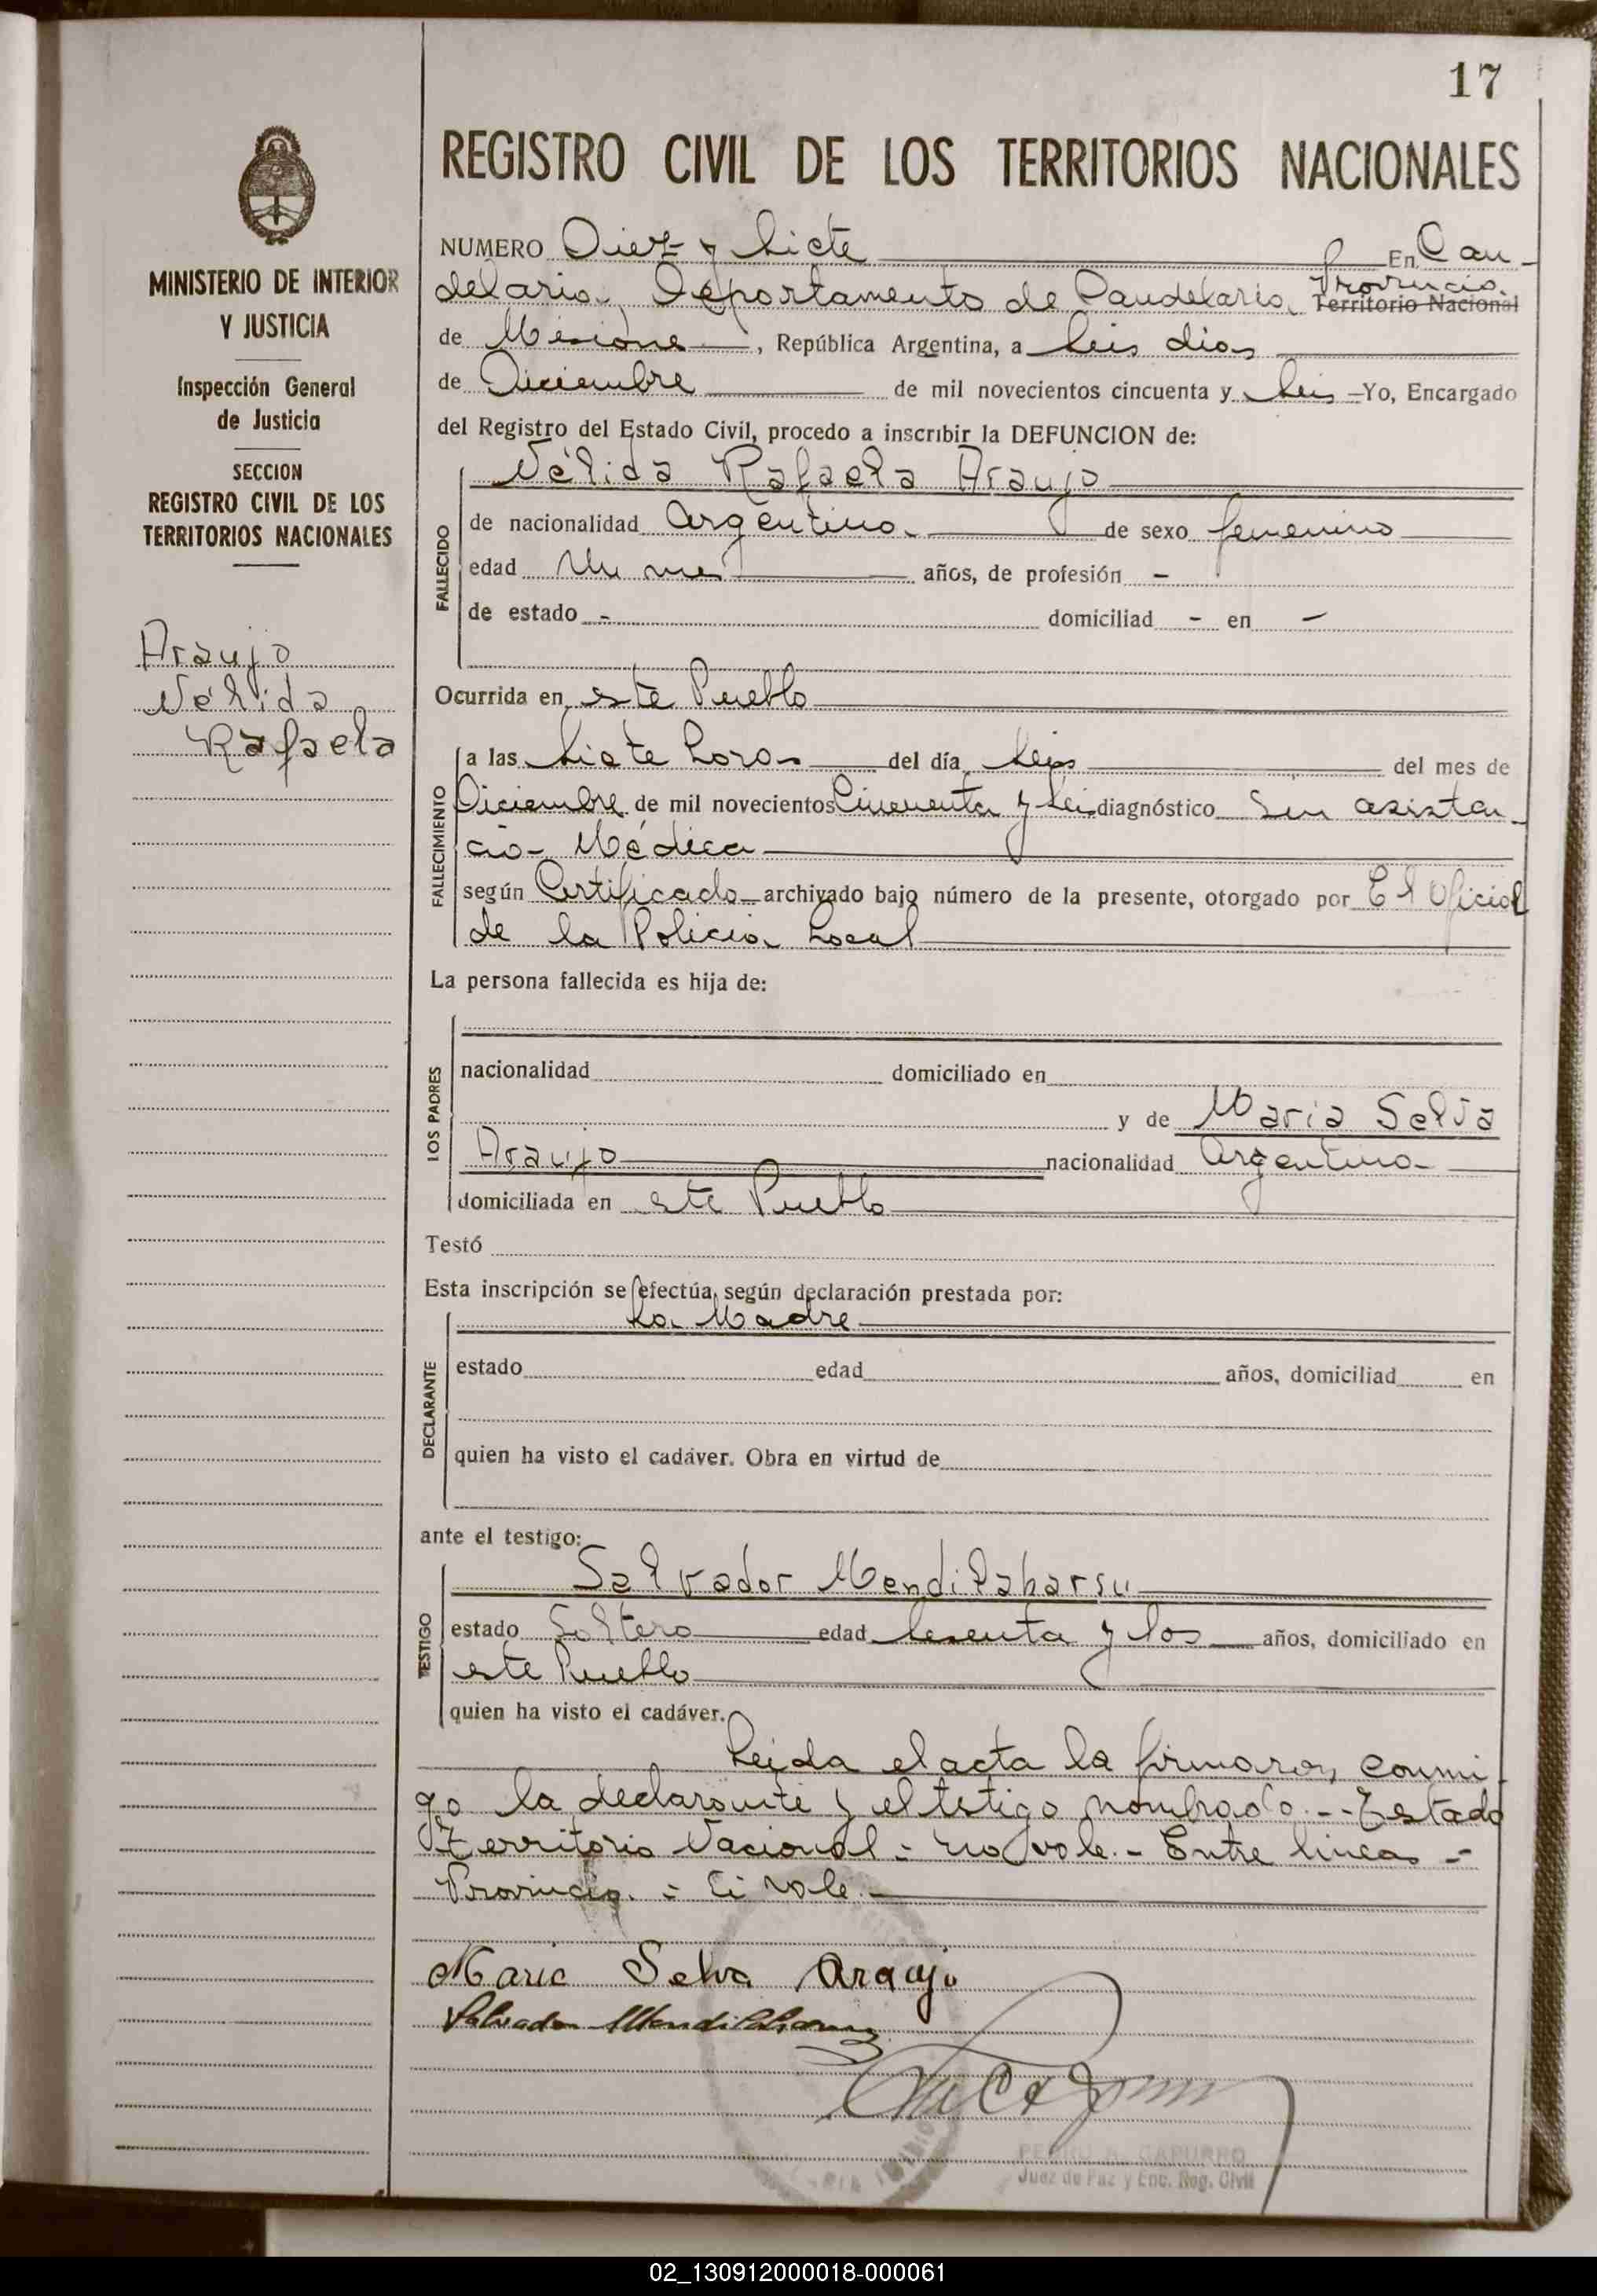 17
REGISTRO CIVIL DE LOS TERRITORIOS NACIONALES
MINISTERIO DE INTERIOR
Y JUSTICIA
Inspección General
de Justicia
SECCION
REGISTRO CIVIL DE LOS
TERRITORIOS NACIONALES
Araujo
Nélida
Rafaela
NUMERO Diez y siete En Can-
delaria, Departamento de Candelaria, Provincia Territorio Nacional
de Misiones, República Argentina, a seis dias
de Diciembre de mil novecientos cincuenta y seis Yo, Encargado
del Registro del Estado Civil, procedo a inscribir la DEFUNCION de:
Nélida Rafaela Araujo
FALLECIDO
de nacionalidad Argentina de sexo femenino
edad Un mes años, de profesión -
de estado - domiciliad - en -
Ocurrida en este Pueblo
FALLECIMIENTO
a las siete horas del día seis del mes de
Diciembre de mil novecientos Cincuenta y seis diagnóstico Sin asisten-
cia Médica
según Certificado archivado bajo número de la presente, otorgado por El Oficial
de la Policia Local
La persona fallecida es hija de:
LOS PADRES
nacionalidad domiciliado en
y de Maria Selva
Araujo nacionalidad Argentina
domiciliada en este Pueblo
Testó
Esta inscripción se efectúa según declaración prestada por:
La Madre
DECLARANTE
estado edad años, domiciliad en
quien ha visto el cadáver. Obra en virtud de
ante el testigo:
Salvador Mendilaharsu
TESTIGO
estado Soltero edad sesenta y dos años, domiciliado en
este Pueblo
quien ha visto el cadáver.
Leida el acta la firmaron conmi-
go la declarante y el testigo nombrado.-- Testado
Territorio Nacional = no vale.- Entre lineas =
Provincia. = Si vale.-
Maria Selva Araujo
Salvador Mendilaharsu
PEDRO A. CAPURRO
Juez de Paz y Enc. Reg. Civil
02_130912000018-000061